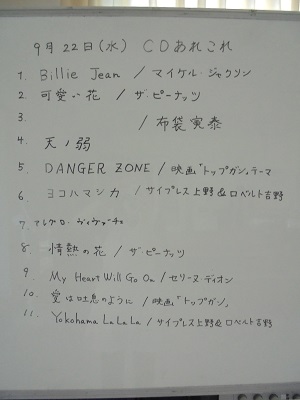 9月22日(水) CDあれこれ
1. Billie Jean / マイケル・ジャクソン
2. 可愛い花 / ザ・ピーナッツ
3. / 布袋寅泰
4. 天ノ弱
5. DANGER ZONE / 映画「トップガン」テーマ
6. ヨコハマシカ / サイプレス上野&ロベルト吉野
7. アレグロ・ヴィヴァーチェ
8. 情熱の花 / ザ・ピーナッツ
9. My Heart Will Go On / セリーヌ・ディオン
10. 愛は吐息のように / 映画「トップガン」
11. Yokohama La La La / サイプレス上野&ロベルト吉野